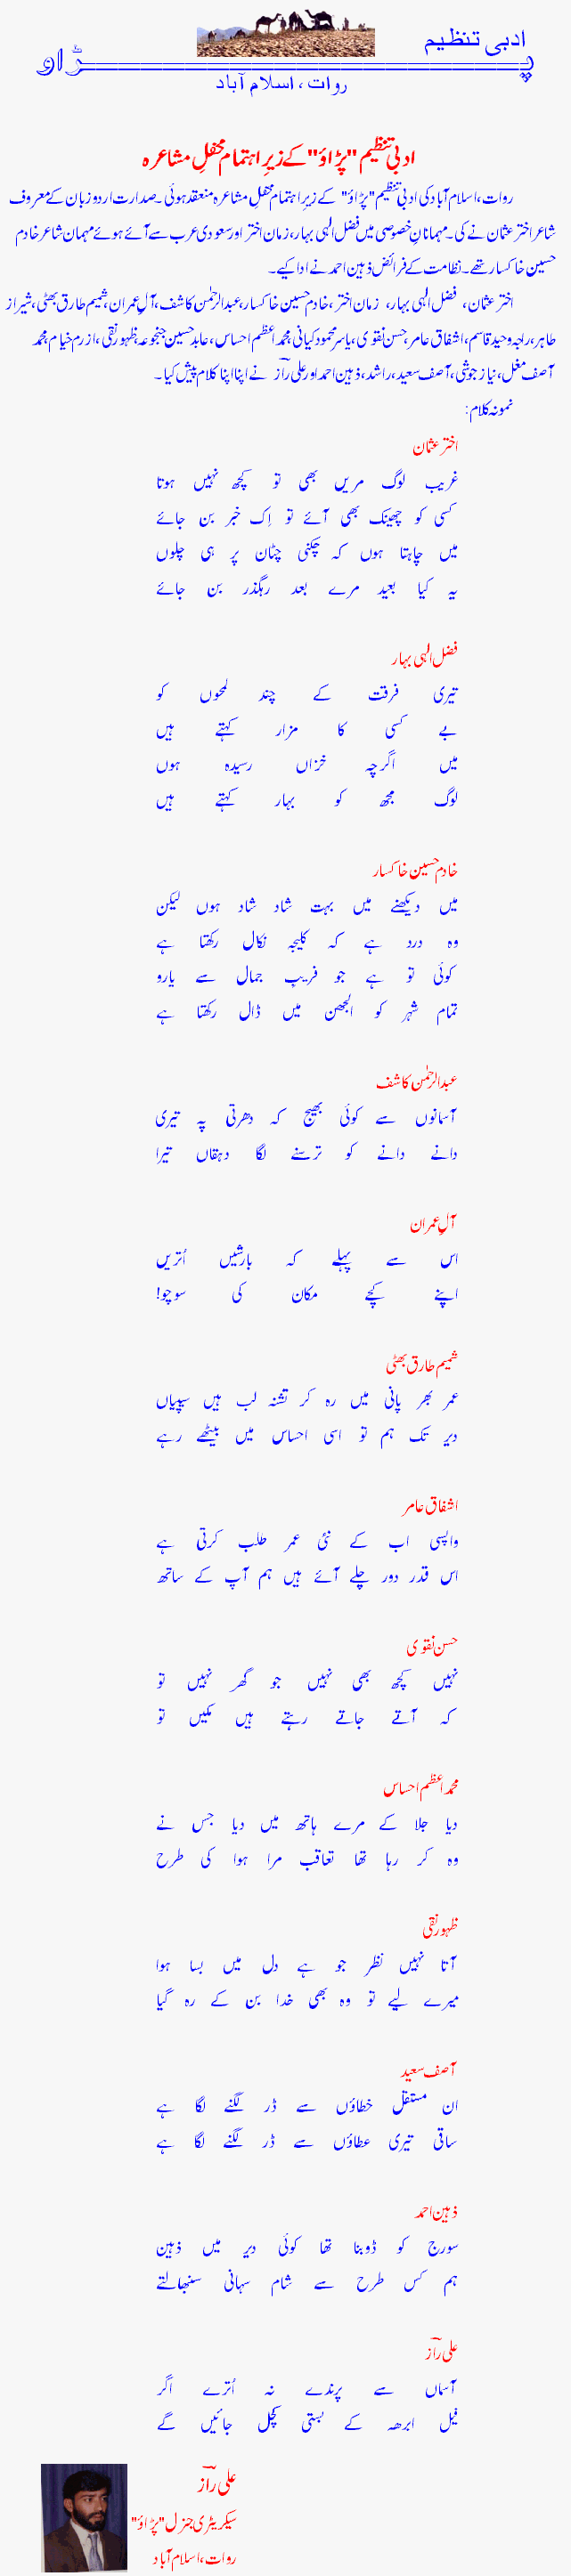 ادبی تنظیم
پڑاو
روات ، اسلام آباد
ادبی تنظیم "پڑاؤ" کے زیرِ اہتمام محفلِ مشاعرہ
روات، اسلام آباد کی ادبی تنظیم "پڑاؤ" کے زیرِ اہتمام محفلِ مشاعرہ منعقد ہوئی۔ صدارت اردو زبان کے معروف
شاعر اختر عثمان نے کی۔ مہمانانِ خصوصی میں فضل الٰہی بہار، زمان اختر اور سعودی عرب سے آئے ہوئے مہمان شاعر خادم
حسین خاکسار تھے۔ نظامت کے فرائض ذہین احمد نے ادا کیے۔
اختر عثمان، فضل الٰہی بہار، زمان اختر، خادم حسین خاکسار، عبدالرحمٰن کاشف، آلِ عمران، شمیم طارق بھٹی، شیراز
طاہر، راجہ وحید قاسم، اشفاق عامر، حسن نقوی، یاسر محمود کیانی، محمد اعظم احساس، عابد حسین جنجوعہ، ظہور نقی، ازرم خیام، محمد
آصف مغل، نیاز جوشی، آصف سعید، راشد، ذہین احمد اور علی رازؔ نے اپنا اپنا کلام پیش کیا۔
نمونہ کلام:
اختر عثمان
غریب لوگ مریں بھی تو کچھ نہیں ہوتا
کسی کو چھینک بھی آئے تو اِک خبر بن جائے
میں چاہتا ہوں کہ چکنی چٹان پر ہی چلوں
یہ کیا بعید مرے بعد رہگذر بن جائے
فضل الٰہی بہار
تیری فرقت کے چند لمحوں کو
بے کسی کا مزار کہتے ہیں
میں اگرچہ خزاں رسیدہ ہوں
لوگ مجھ کو بہار کہتے ہیں
خادم حسین خاکسار
میں دیکھنے میں بہت شاد شاد ہوں لیکن
وہ درد ہے کہ کلیجہ نکال رکھتا ہے
کوئی تو ہے جو فریبِ جمال سے یارو
تمام شہر کو الجھن میں ڈال رکھتا ہے
عبدالرحمٰن کاشف
آسمانوں سے کوئی بھیج کہ دھرتی پہ تیری
دانے دانے کو ترسنے لگا دہقاں تیرا
آلِ عمران
اس سے پہلے کہ بارشیں اُتریں
اپنے کچے مکان کی سوچو!
شمیم طارق بھٹی
عمر بھر پانی میں رہ کر تشنہ لب ہیں سیپیاں
دیر تک ہم تو اسی احساس میں بیٹھے رہے
اشفاق عامر
واپسی اب کے نئی عمر طلب کرتی ہے
اس قدر دور چلے آئے ہیں ہم آپ کے ساتھ
حسن نقوی
نہیں کچھ بھی نہیں جو گھر نہیں تو
کہ آتے جاتے رہتے ہیں مکیں تو
محمد اعظم احساس
دیا جلا کے مرے ہاتھ میں دیا جس نے
وہ کر رہا تھا تعاقب مرا ہوا کی طرح
ظہور نقی
آتا نہیں نظر جو ہے دل میں بسا ہوا
میرے لیے تو وہ بھی خدا بن کے رہ گیا
آصف سعید
ان مستقل خطاؤں سے ڈر لگنے لگا ہے
ساقی تیری عطاؤں سے ڈر لگنے لگا ہے
ذہین احمد
سورج کو ڈوبنا تھا کوئی دیر میں ذہین
ہم کس طرح سے شام سہانی سنبھالتے
علی رازؔ
آسماں سے پرندے نہ اُترے اگر
فیل ابرھہ کے بستی کچل جائیں گے
علی رازؔ
سیکریٹری جنرل "پڑاؤ"
روات، اسلام آباد